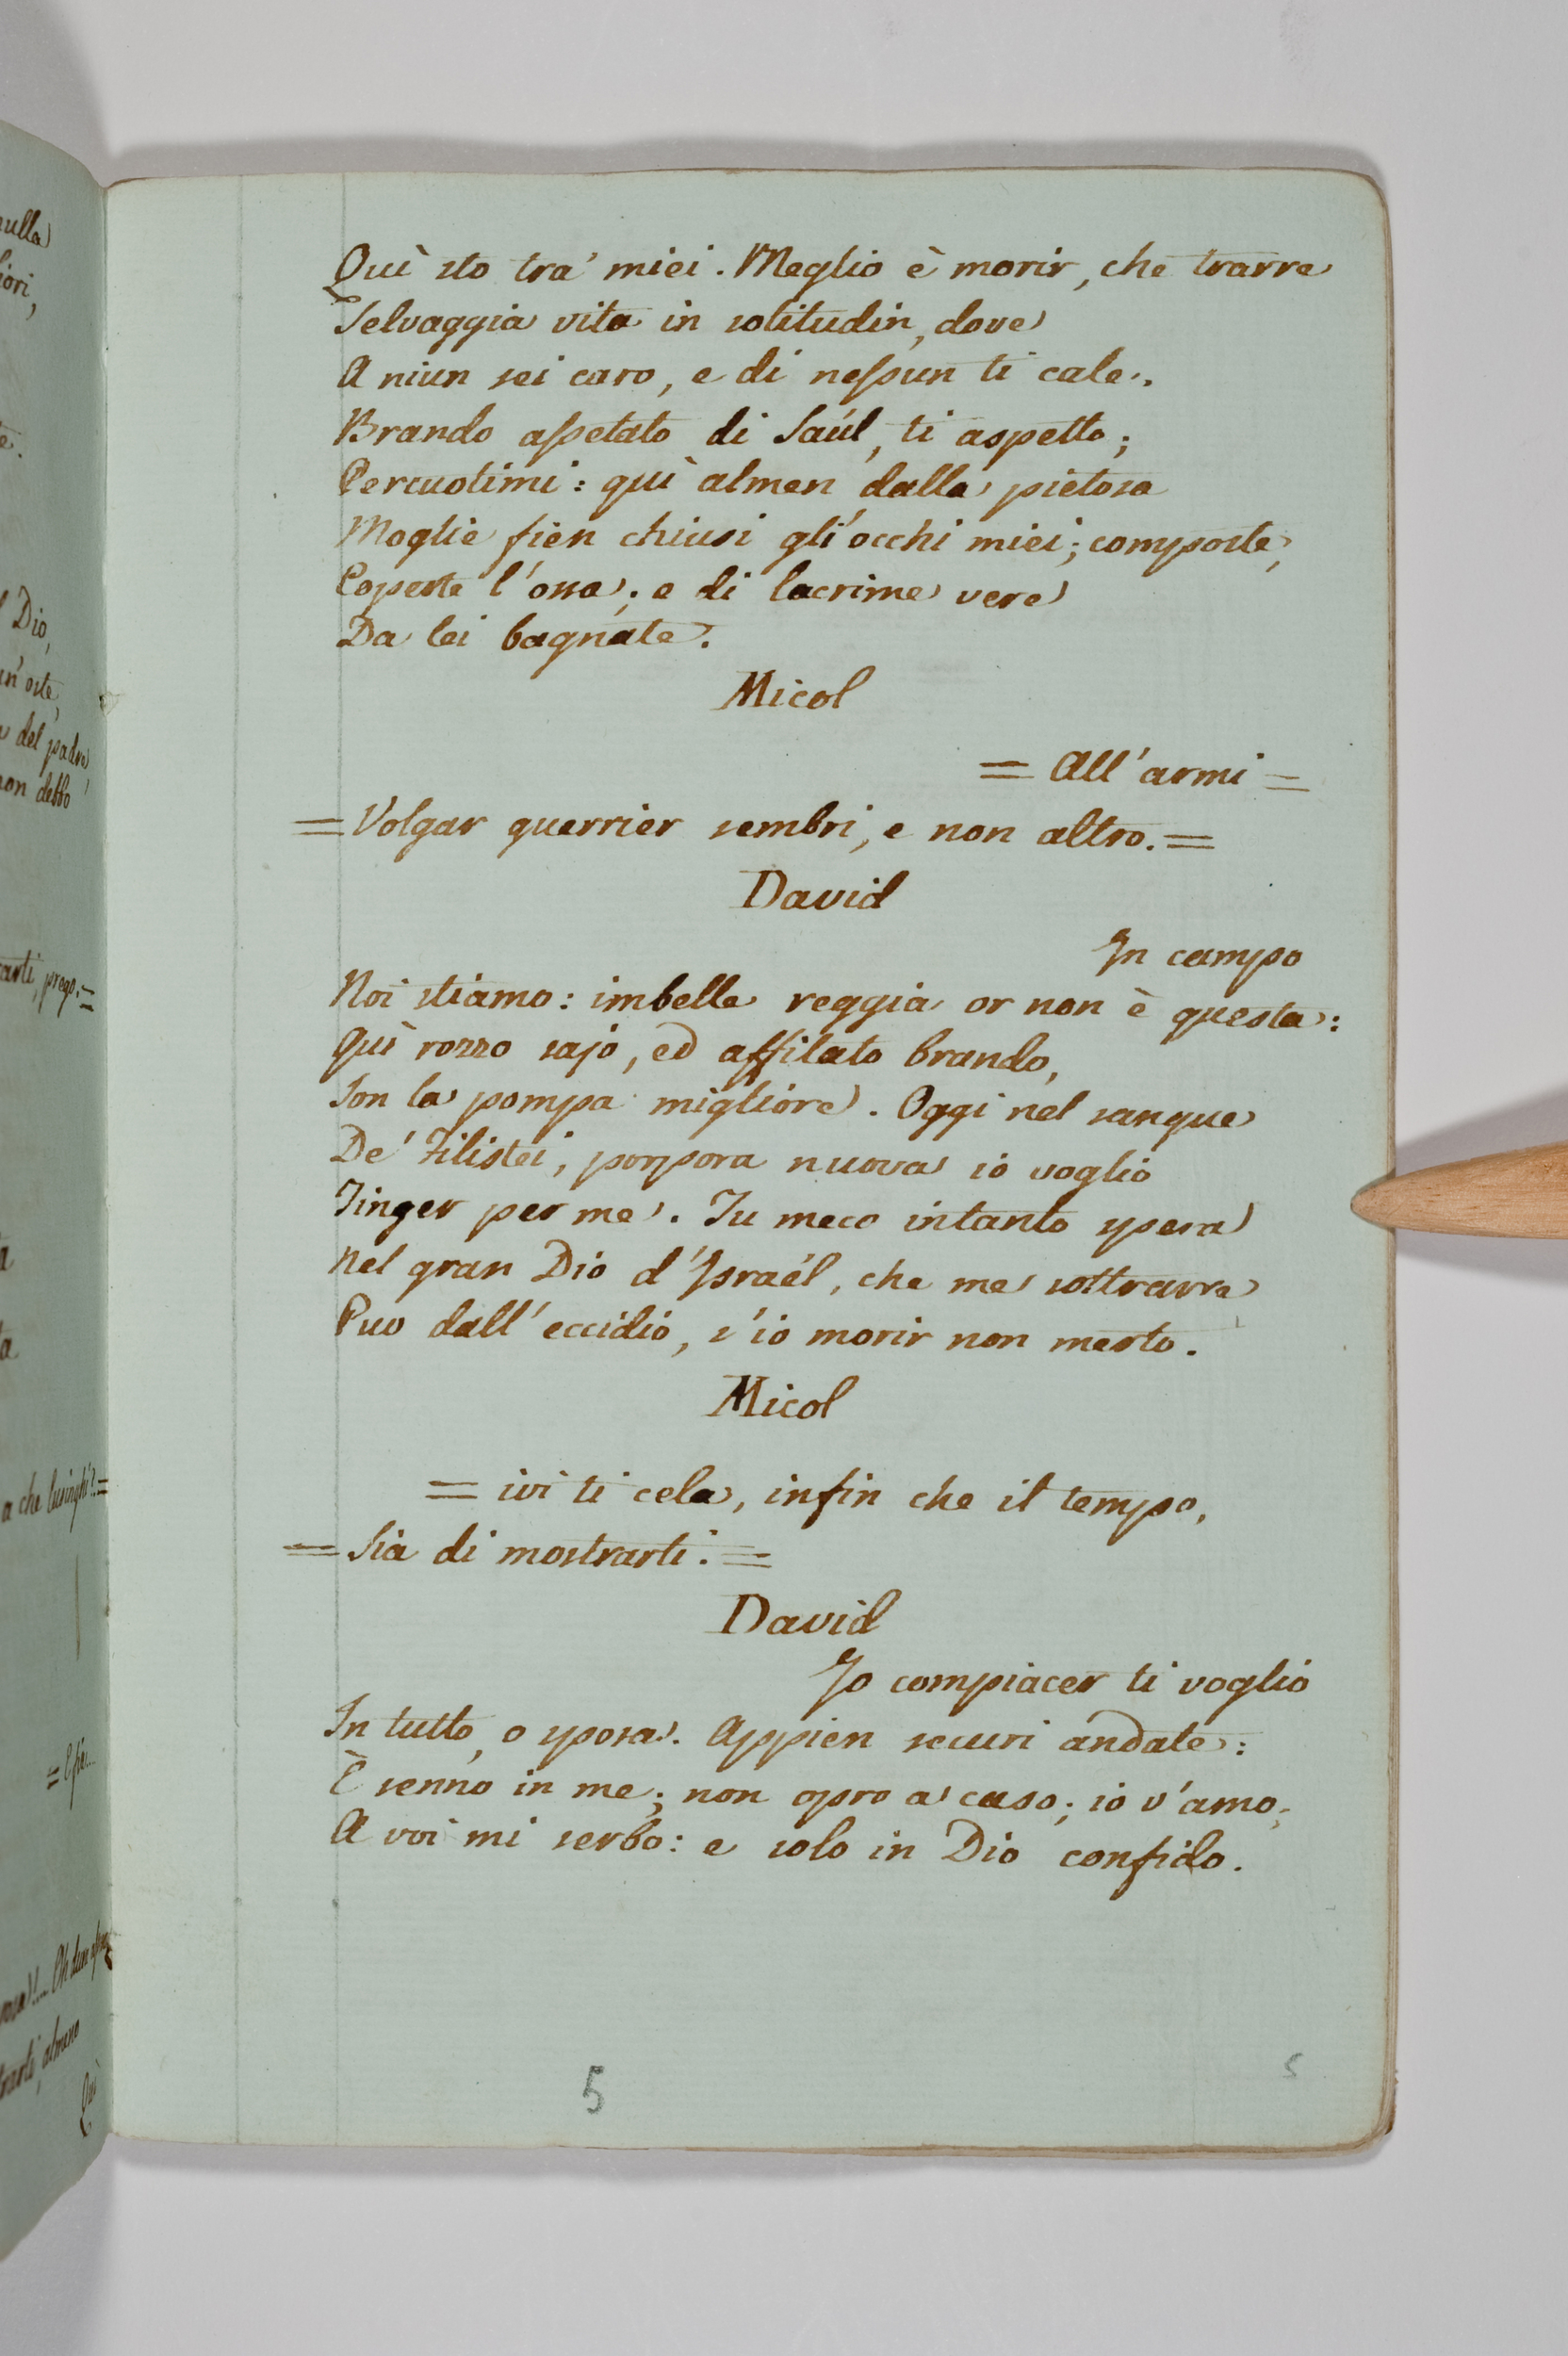 Quì sto tra' miei. Meglio è morir, che trarre
Selvaggia vita in solitudin, dove
A niun sei caro, e di nessun ti cale.
Brando assetato di Saúl, ti aspetto;
Percuotimi: quì almen dalla pietosa
Moglie fien chiusi gli occhi miei; composte,
Coperte l'ossa; e di lacrime vere
Da lei bagnate.
Micol
= All'armi =
= Volgar guerrier sembri, e non altro. =
David
In campo
Noi stiamo: imbelle reggia or non è questa:
Quì rozzo sajo, ed affilato brando,
Son la pompa migliore. Oggi nel sangue
De' Filistei, porpora nuova io voglio
Tinger per me. Tu meco intanto spera
Nel gran Dio d'Israél, che me sottrarre
Puo dall'eccidio, s'io morir non merto.
Micol
= ivi ti cela, infin che il tempo,
= Sia di mostrarti. =
David
Io compiacer ti voglio
In tutto, o sposa. Appien securi andate:
È senno in me; non opro a caso; io v'amo;
A voi mi serbo: e solo in Dio confido.
5
5
nulla
iori,
te.
Dio,
un'oste,
del padre
non debbo
arti, prego. =
a
a
a che lusinghi? =
almeno
Quì